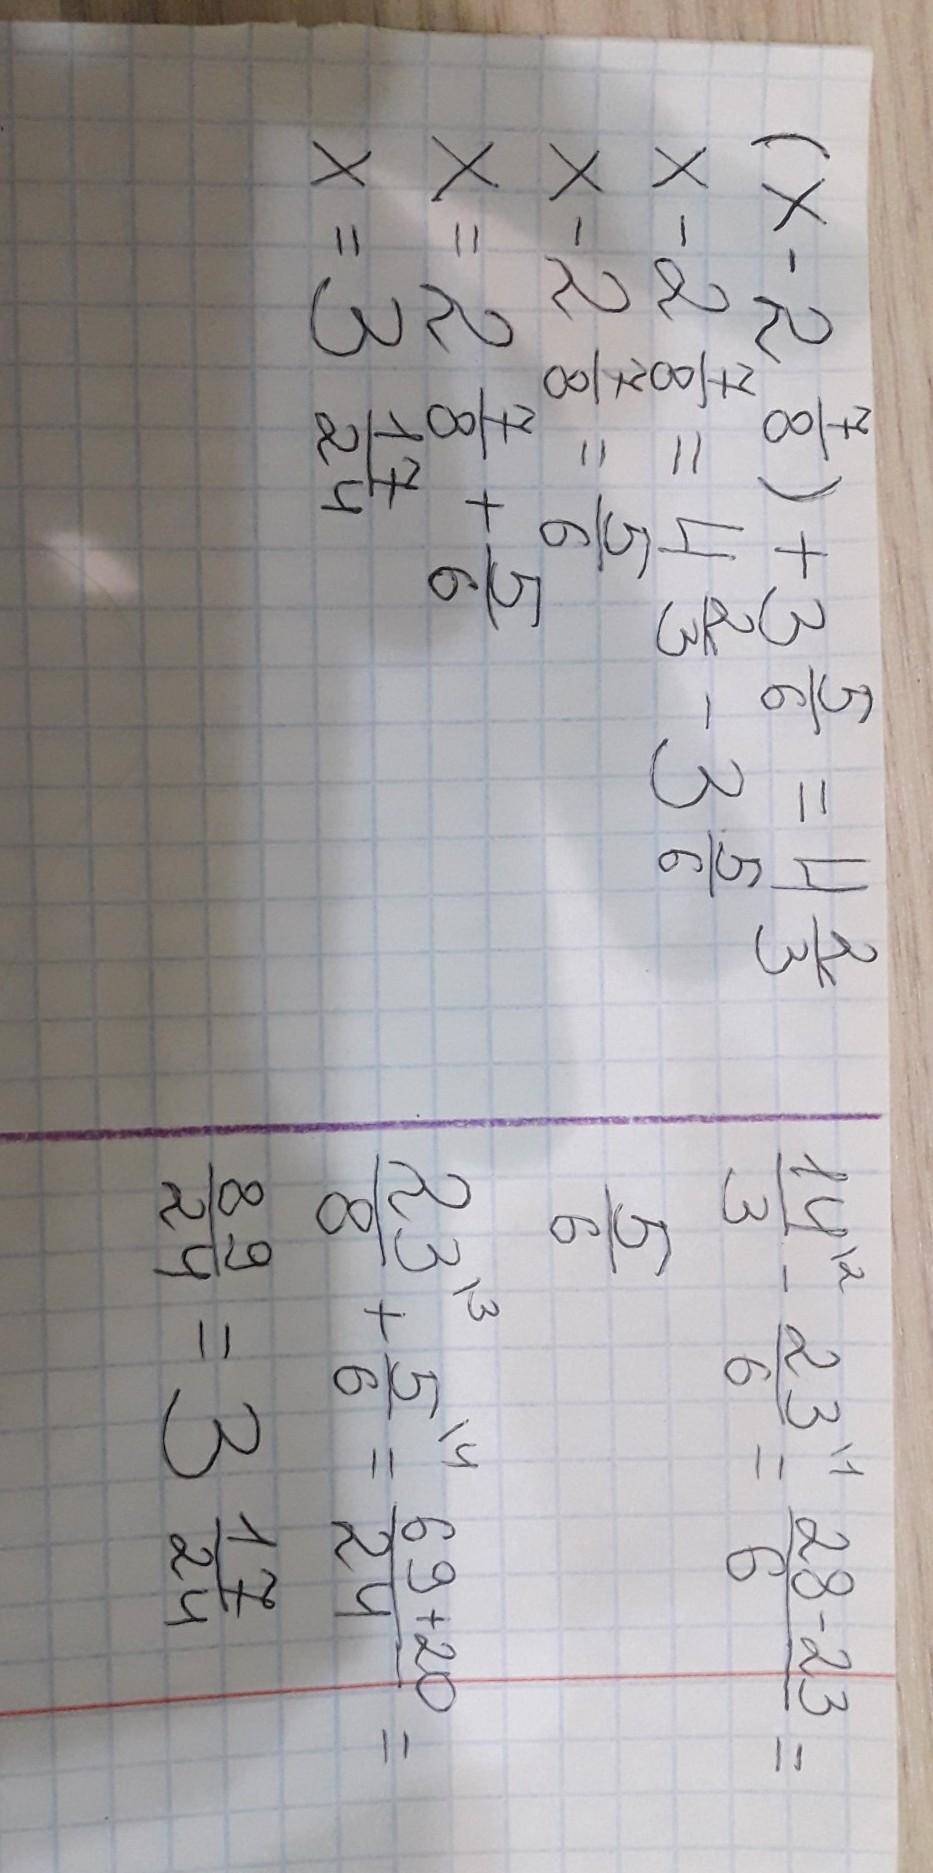 (x - 2 7/8) + 3 5/6 = 4 2/3
x - 2 7/8 = 4 2/3 - 3 5/6
x - 2 7/8 = 5/6
x = 2 7/8 + 5/6
x = 3 17/24
14\2/3 - 23\1/6 = 28-23/6 =
5/6
23\3/8 + 5\4/6 = 69+20/24 =
89/24 = 3 17/24